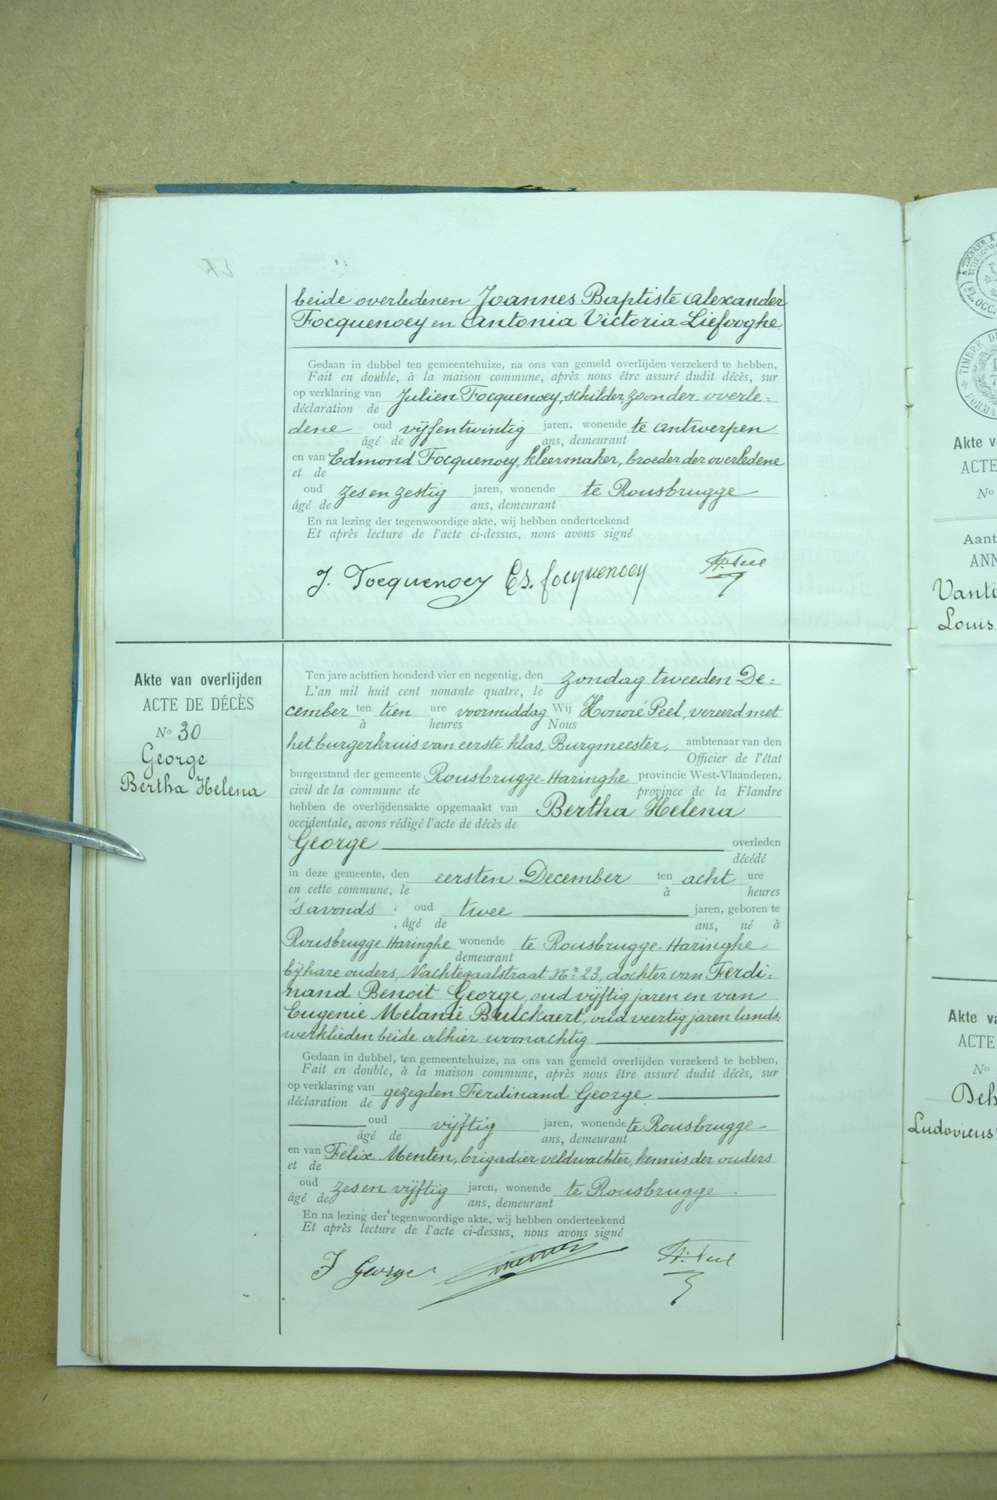 beide overledenen Joannes Baptiste Alexander
Focquenoey en Antonia Victoria Liefooghe.
Gedaan in dubbel ten gemeentehuize, na ons van gemeld overlijden verzekerd te hebben,
Fait en double, à la maison commune, après nous être assuré dudit décès, sur
op verklaring van Julien Focquenoey, schilder, zoon der overle-
déclaration de
dene oud vijfentwintig jaren, wonende te Antwerpen
âgé de ans, demeurant
en van Edmond Focquenoey, kleermaker, broeder der overledene
et de
oud zes en zestig jaren, wonende te Rousbrugge
âgé de ans, demeurant
En na lezing der tegenwoordige akte, wij hebben onderteekend
Et après lecture de l'acte ci-dessus, nous avons signé
J. Focquenoey Ed. focquenoey
Akte van overlijden
ACTE DE DÉCÈS
No 30
George
Bertha Helena
Ten jare achttien honderd vier en negentig, den zondag tweeden De-
L'an mil huit cent nonante quatre, le
cember ten tien ure voormiddag Wij Honoré Peel, vereerd met
à heures Nous
het burgerkruis van eerste klas, Burgmeester, ambtenaar van den
Officier de l'état
burgerstand der gemeente Rousbrugge-Haringhe provincie West-Vlaanderen,
civil de la commune de province de la Flandre
hebben de overlijdensakte opgemaakt van Bertha Helena
occidentale, avons rédigé l'acte de décès de
George overleden
décédé
in deze gemeente, den eersten December ten acht ure
en cette commune, le à heures
's avonds oud twee jaren, geboren te
, âgé de ans, né à
Rousbrugge-Haringhe wonende te Rousbrugge-Haringhe
demeurant
bij hare ouders, Nachtegaalstraat No 23, dochter van Ferdi-
nand Benoit George, oud vijftig jaren en van
Eugenie Melanie Bulckaert, oud veertig jaren lands-
werklieden beide alhier woonachtig
Gedaan in dubbel, ten gemeentehuize, na ons van gemeld overlijden verzekerd te hebben,
Fait en double, à la maison commune, après nous être assuré dudit décès, sur
op verklaring van gezegden Ferdinand George
déclaration de
oud vijftig jaren, wonende te Rousbrugge
âgé de ans, demeurant
en van Felix Menten, brigadier veldwachter, kennis der ouders
et de
oud zes en vijftig jaren, wonende te Rousbrugge.
âgé de ans, demeurant
En na lezing der tegenwoordige akte, wij hebben onderteekend
Et après lecture de l'acte ci-dessus, nous avons signé
F George
Akte v
ACTE
No
Aant
ANN
Vanti
Louis
Akte va
ACTE
No
Deh
Ludovicus